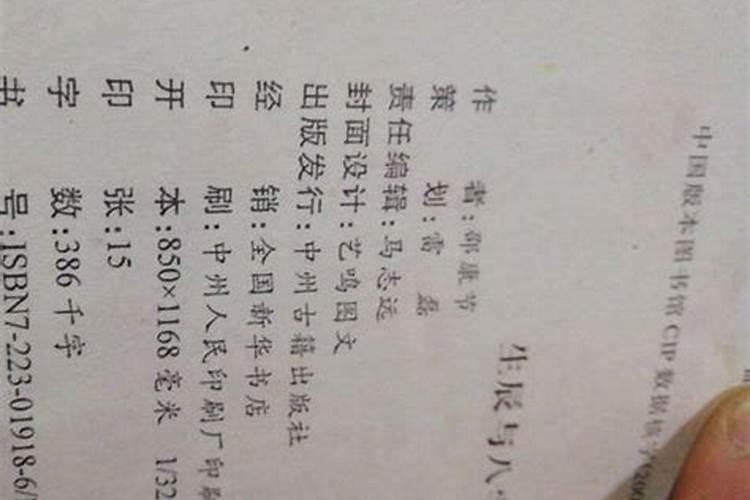 中国版本图书馆CIP数据核字(200
生辰与八
作 者:邵康节
策 划:雷 磊
责任编辑:马志远
封面设计:艺鸣图文
出版发行:中州古籍出版社
经 销:全国新华书店
印 刷:中州人民印刷厂印刷
开 本:850×1168毫米 1/32
印 张:15
字 数:386千字
书 号:ISBN7-223-01918-6/